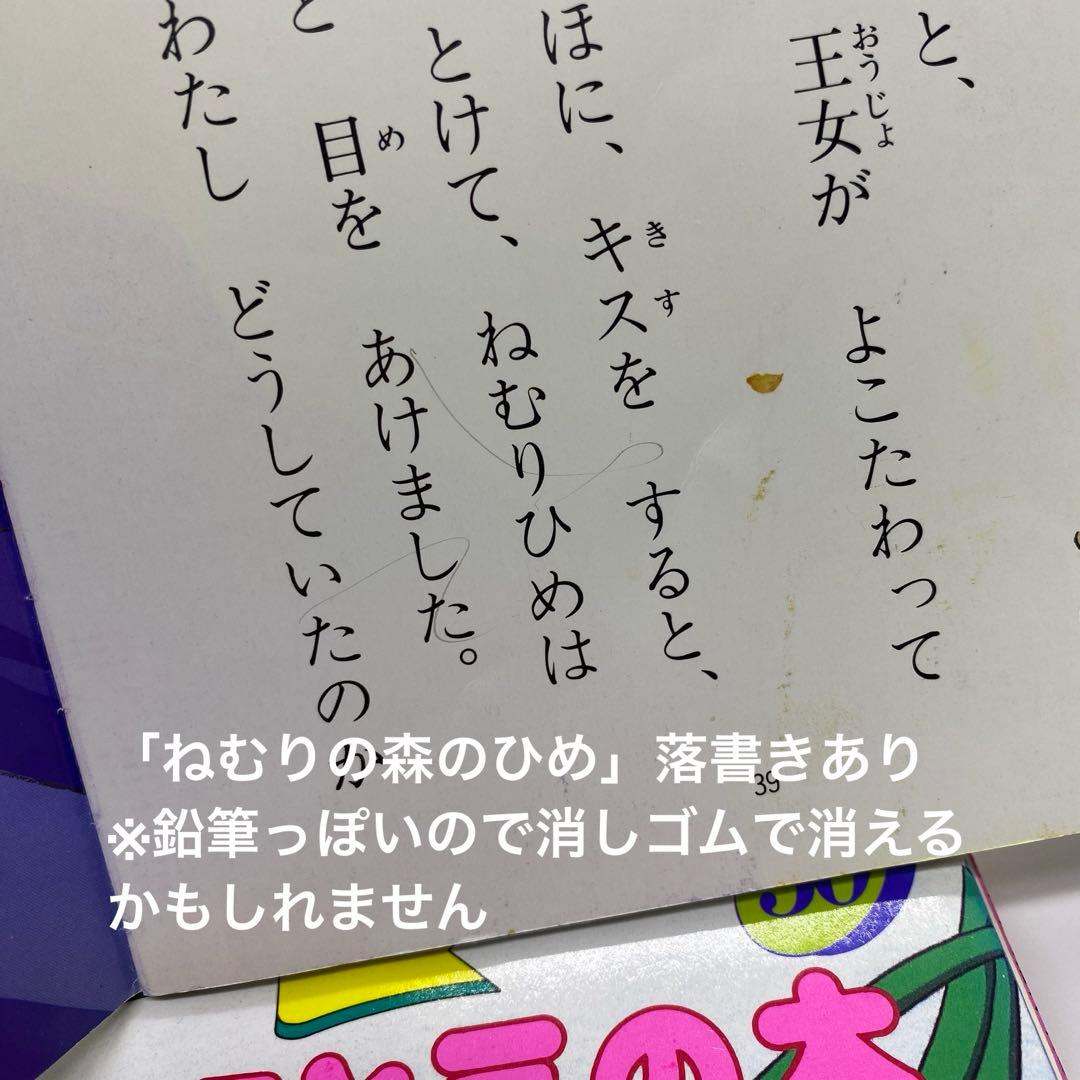 と、
王女が よこたわって
おうじょ
ほに、 キスを すると、
きす
とけて、 ねむりひめは
と 目を あけました。
め
わたし どうしていたのか
39
「ねむりの森のひめ」落書きあり
※鉛筆っぽいので消しゴムで消える
かもしれません